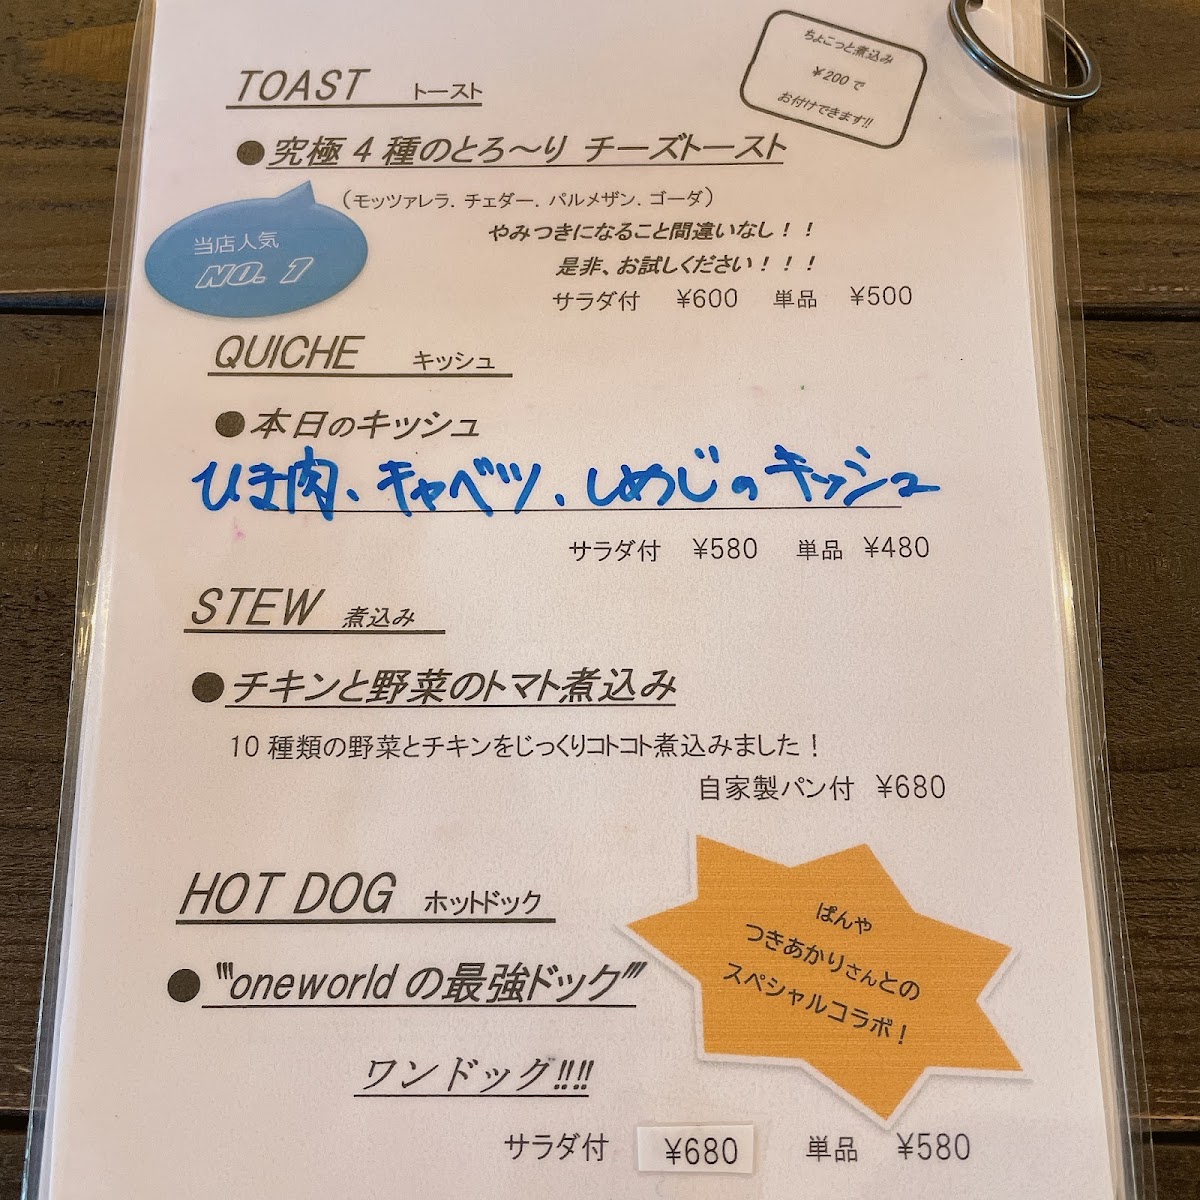 ちょこっと煮込み
¥200で
お付けできます!!
TOAST トースト
●究極4種のとろ～り チーズトースト
（モッツァレラ．チェダー．パルメザン．ゴーダ）
当店人気
NO. 1
やみつきになること間違いなし！！
是非、お試しください！！！
サラダ付 ¥600 単品 ¥500
QUICHE キッシュ
●本日のキッシュ
ひき肉、キャベツ、しめじのキッシュ
サラダ付 ¥580 単品 ¥480
STEW 煮込み
●チキンと野菜のトマト煮込み
10種類の野菜とチキンをじっくりコトコト煮込みました！
自家製パン付 ¥680
HOT DOG ホットドック
●"'oneworldの最強ドック"'
ワンドッグ!!!!
ぱんや
つきあかりさんとの
スペシャルコラボ！
サラダ付 ¥680 単品 ¥580